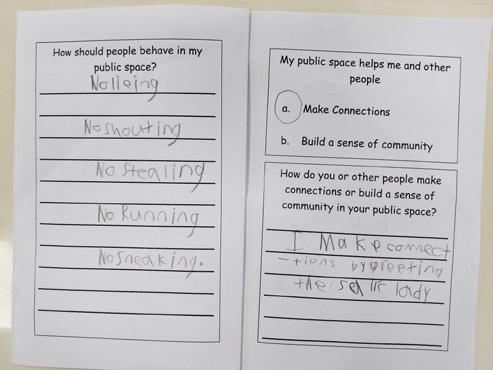 How should people behave in my
public space?
No lieing
No shouting
No stealing
No Running
No sneaking.
My public space helps me and other
people
a. Make Connections
b. Build a sense of community
How do you or other people make
connections or build a sense of
community in your public space?
I Make connect
-tions by greeting
the lady